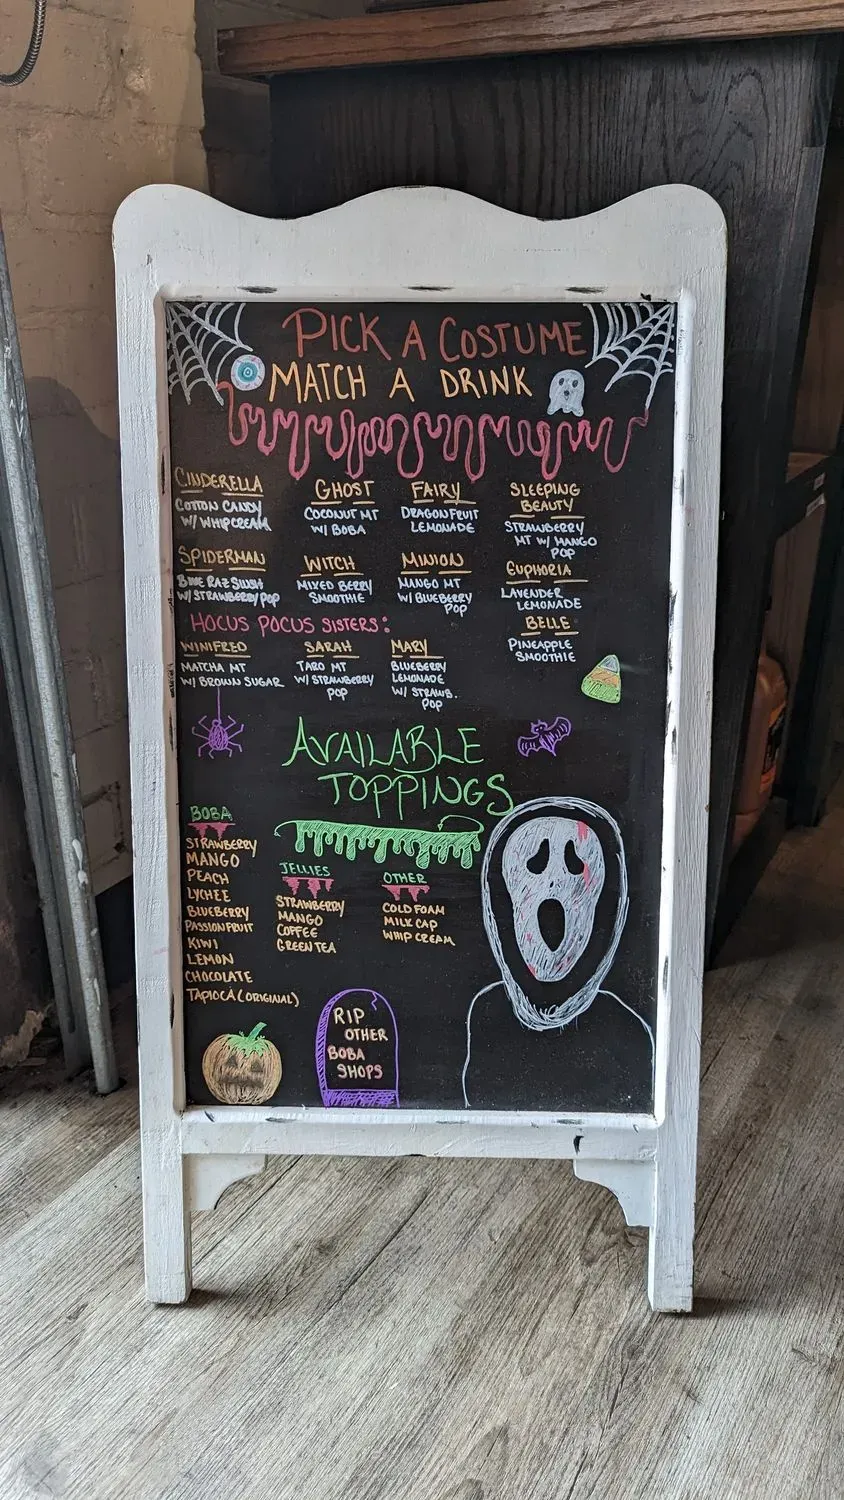 PICK A COSTUME
MATCH A DRINK
CINDERELLA
COTTON CANDY
W/ WHIPCREAM
GHOST
COCONUT MT
W/ BOBA
FAIRY
DRAGONFRUIT
LEMONADE
SLEEPING
BEAUTY
STRAWBERRY
MT W/ MANGO
POP
SPIDERMAN
BLUE RAZ SLUSH
W/ STRAWBERRY POP
WITCH
MIXED BERRY
SMOOTHIE
MINION
MANGO MT
W/ BLUEBERRY
POP
EUPHORIA
LAVENDER
LEMONADE
BELLE
PINEAPPLE
SMOOTHIE
HOCUS POCUS SISTERS:
WINIFRED
MATCHA MT
W/ BROWN SUGAR
SARAH
TARO MT
W/ STRAWBERRY
POP
MARY
BLUEBERRY
LEMONADE
W/ STRAWB.
POP
AVAILABLE
TOPPINGS
BOBA
STRAWBERRY
MANGO
PEACH
LYCHEE
BLUEBERRY
PASSIONFRUIT
KIWI
LEMON
CHOCOLATE
TAPIOCA (ORIGINAL)
JELLIES
STRAWBERRY
MANGO
COFFEE
GREEN TEA
OTHER
COLD FOAM
MILK CAP
WHIP CREAM
RIP
OTHER
BOBA
SHOPS